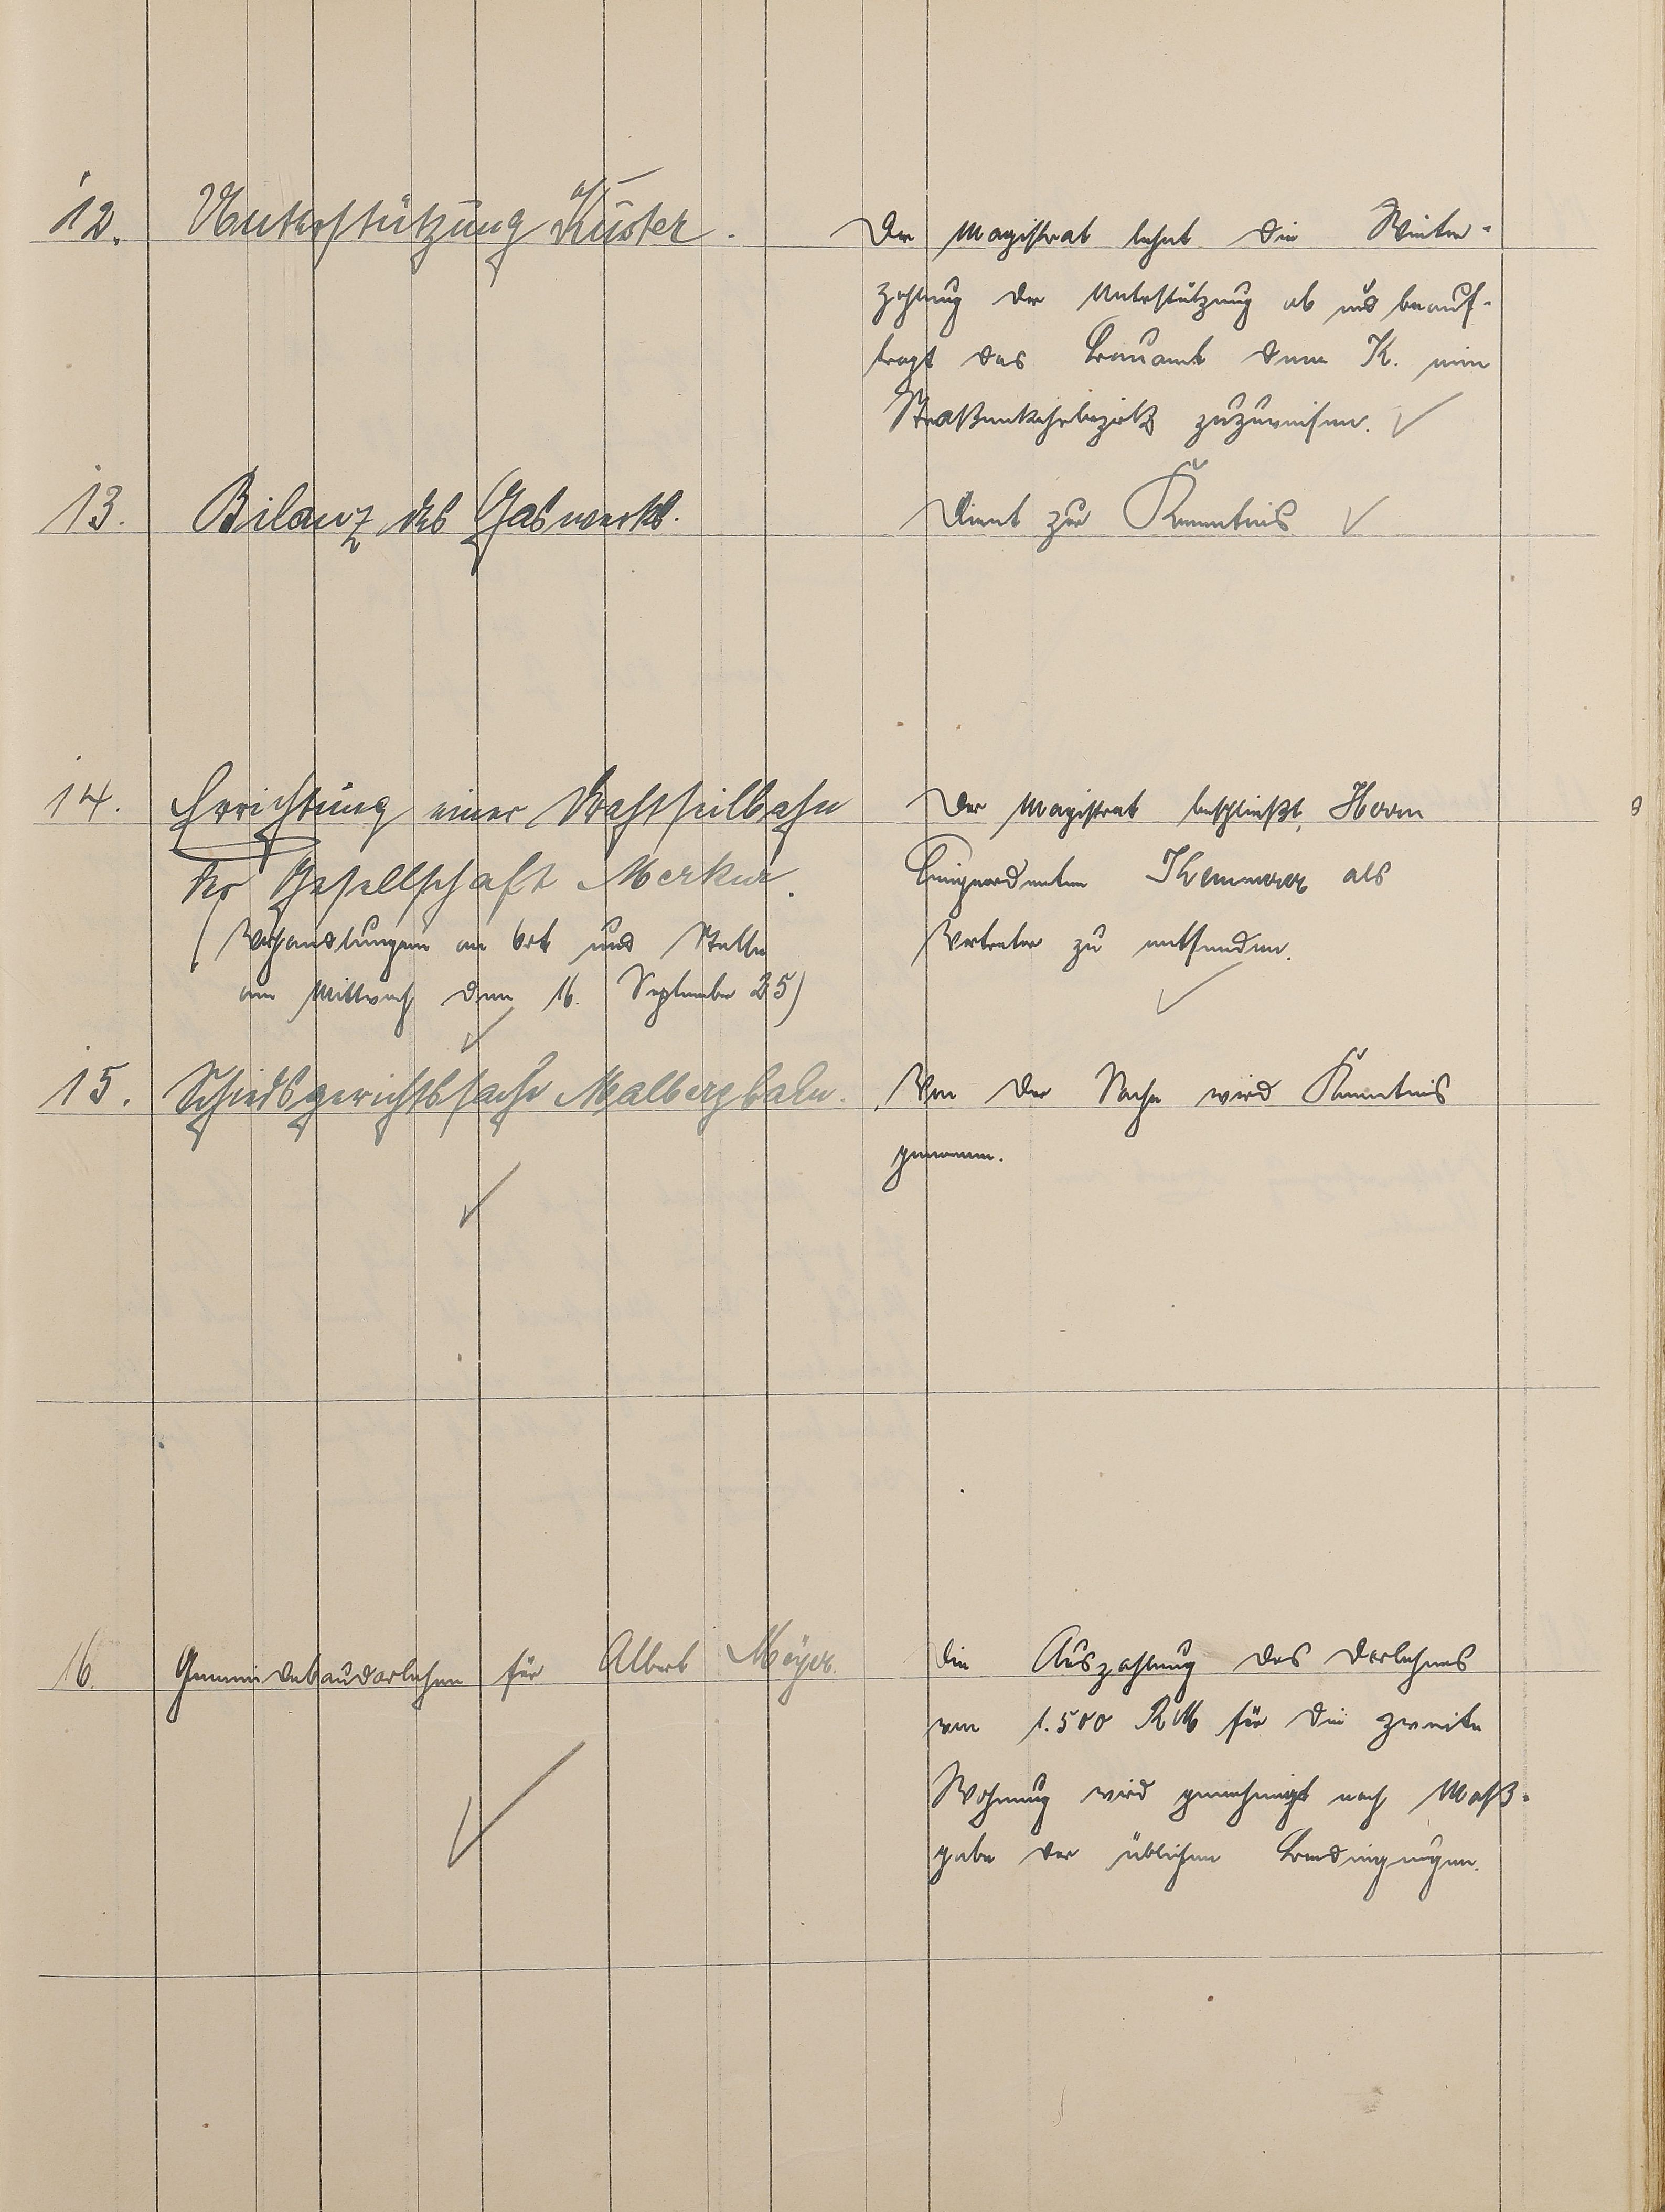 12. Unterstützung Küster.
Der Magistrat lehnt die Weiter-
zahlung der Unterstützung ab und beauf-
tragt das Bauamt dem K. einen
Straßenkehrbezirk zuzuweisen.
13. Bilanz des Gaswerks.
Dient zur Kenntnis
14. Errichtung einer Drahtseilbahn
der Gesellschaft Merkur.
(Verhandlungen an Ort und Stelle
am Mittwoch dem 16. September 25)
Der Magistrat beschließt, Herrn
Beigeordneten Kemmerer als
Vertreter zu entsenden.
15. Schiedsgerichtssache Malbergbahn.
Von der Sache wird Kenntnis
genommen.
16. Gemeindebaudarlehen für Albert Meyer.
Die Auszahlung des Darlehens
von 1.500 RM für die zweite
Wohnung wird genehmigt nach Maß-
gabe der üblichen Bedingungen.